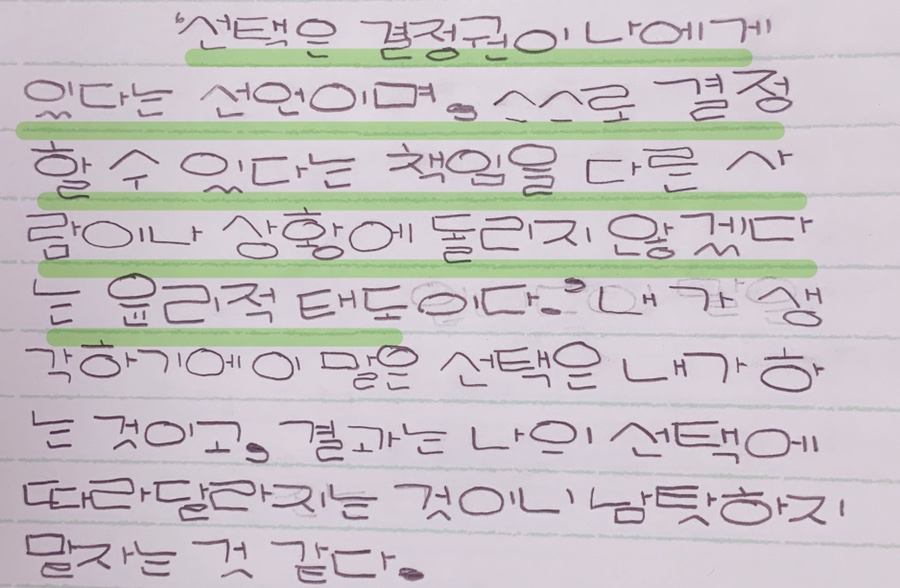 "선택은 결정권이 나에게
있다는 선언이며, 스스로 결정
할 수 있다는 책임을 다른 사
람이나 상황에 돌리지 않겠다
는 윤리적 태도이다." 내가 생
각하기에 이 말은 선택은 내가 하
는 것이고, 결과는 나의 선택에
따라 달라지는 것이니 남탓하지
말자는 것 같다.